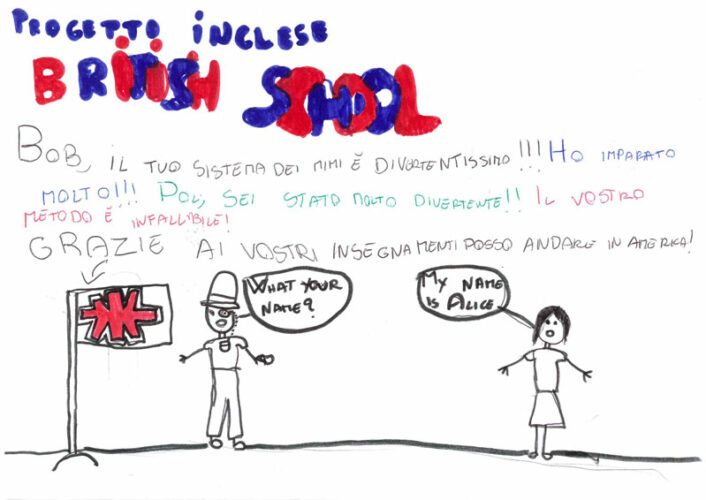 PROGETTO INGLESE
BRITISH SCHOOL
BOB, IL TUO SISTEMA DEI MIMI È DIVERTENTISSIMO!!! HO IMPARATO
MOLTO!!! POI, SEI STATO MOLTO DIVERTENTE!! IL VOSTRO
METODO È INFALLIBILE!
GRAZIE AI VOSTRI INSEGNAMENTI POSSO ANDARE IN AMERICA!
WHAT YOUR
NAME?
MY NAME
IS ALICE